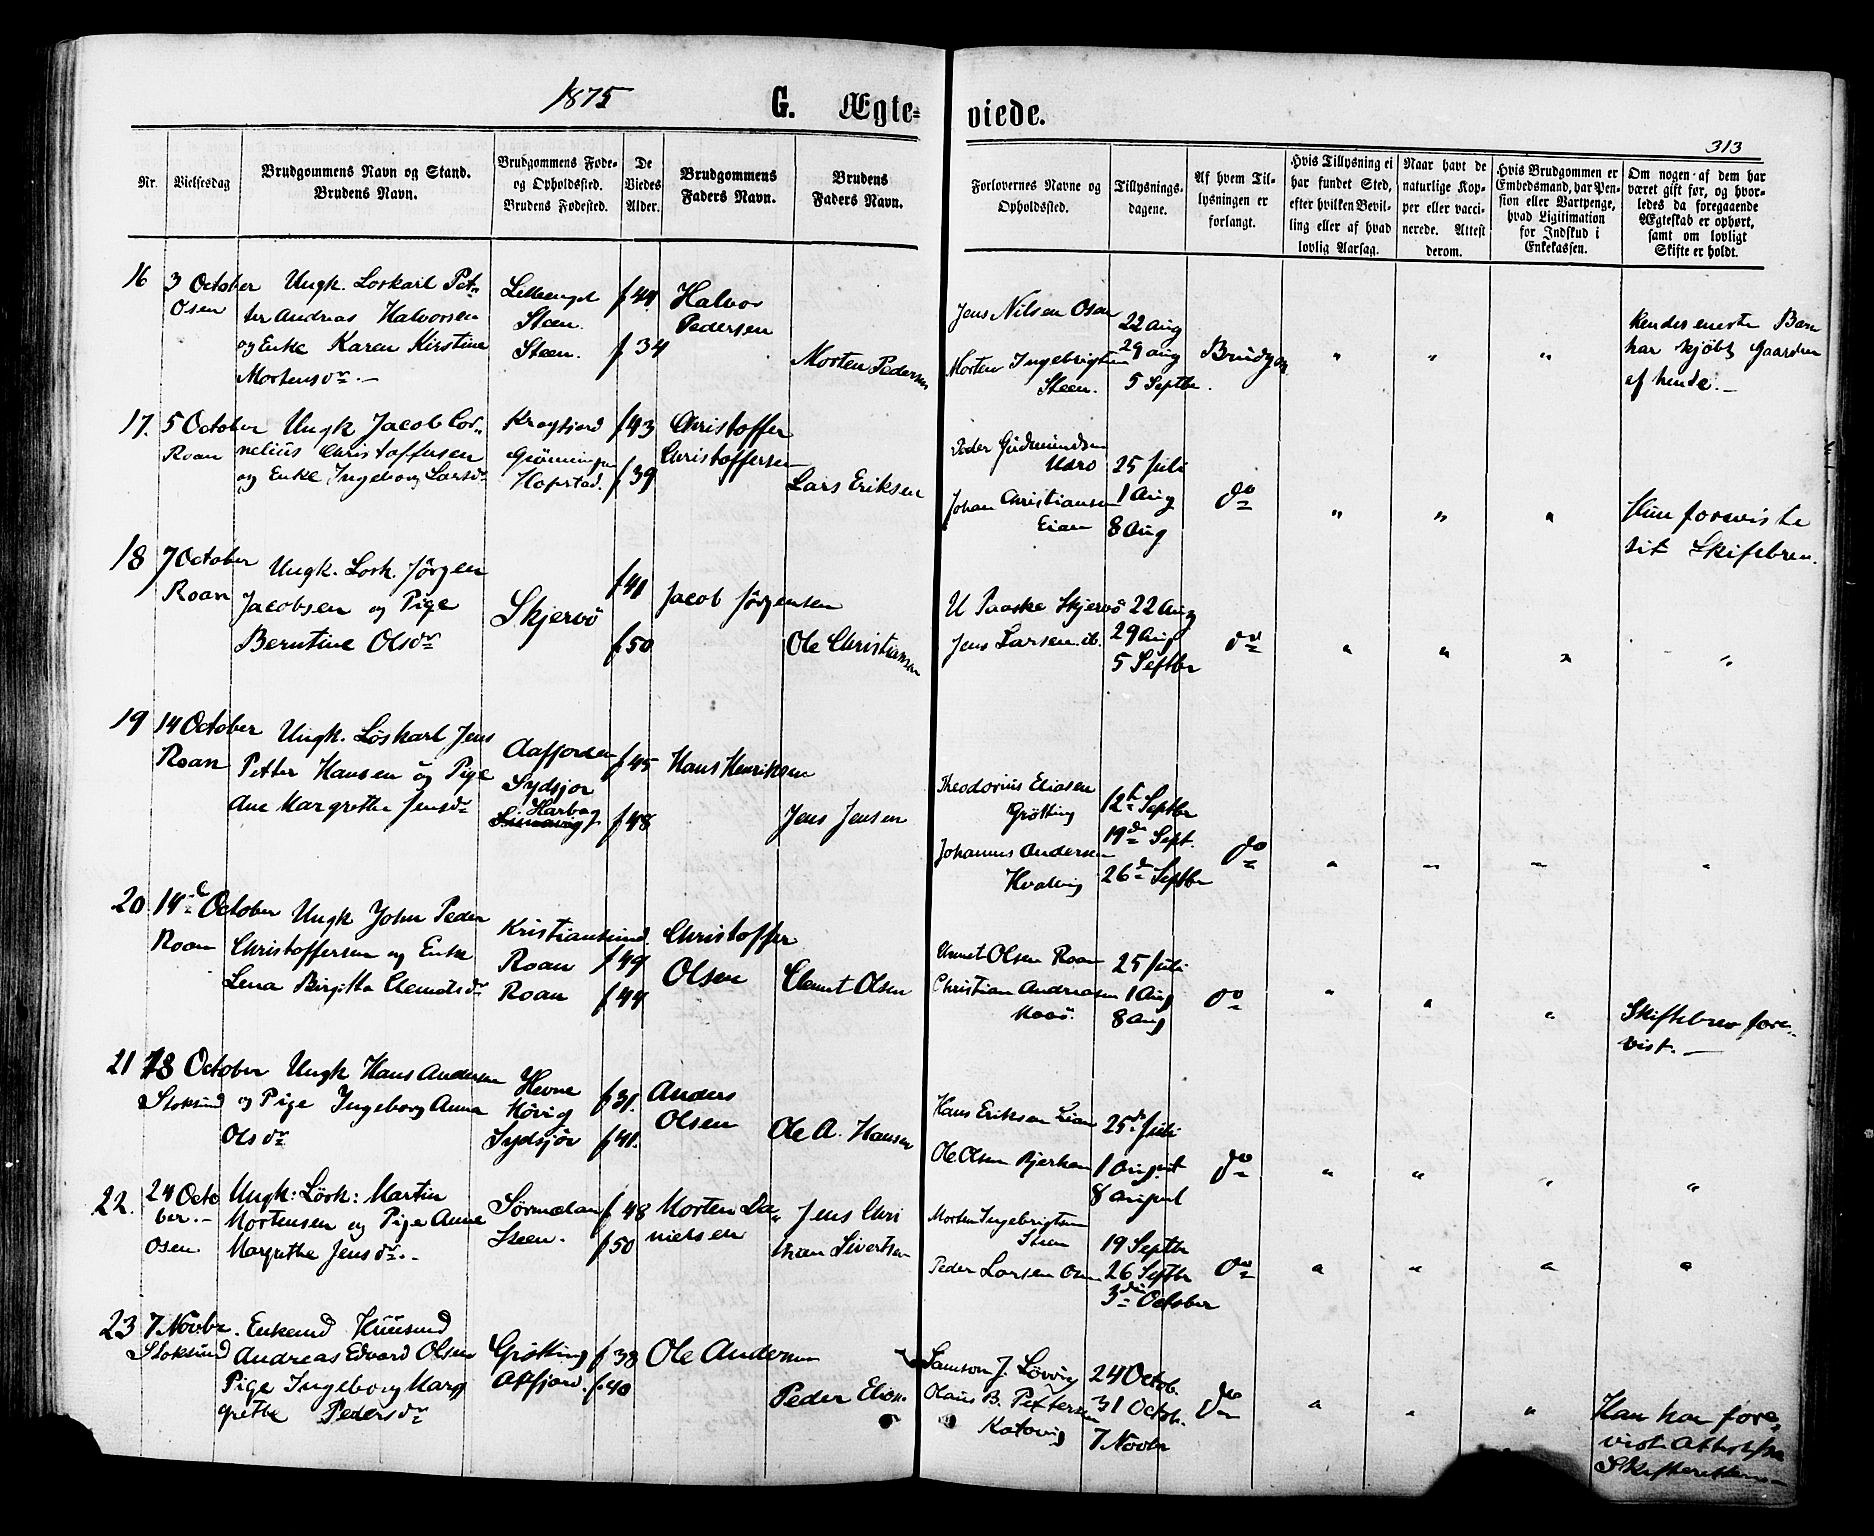 1875
G. Ægte-
viede.
313
Nr.
Vielsesdag
Brudgommens Navn og Stand.
Brudens Navn.
Brudgommens Føde-
og Opholdssted.
Brudens Fødested.
De
Viedes
Alder.
Brudgommens
Faders Navn.
Brudens
Faders Navn.
Forlovernes Navne og
Opholdssted.
Tillysnings-
dagene.
Af hvem Til-
lysningen er
forlangt.
Hvis Tillysning ei
har fundet Sted,
efter hvilken Bevil-
ling eller af hvad
lovlig Aarsag.
Naar havt de
naturlige Kop-
per eller vacci-
nerede. Attest
derom.
Hvis Brudgommen er
Embedsmand, har Pen-
sion eller Vartpenge,
hvad Ligitimation
for Indskud i
Enkekassen.
Om nogen af dem har
været gift før, og hvor-
ledes da foregaaende
Ægteskab er ophørt,
samt om lovligt
Skifte er holdt.
16
3 October
Osen
Ungk. Loskarl Pet-
ter Andreas Halvorsen
og Enke Karen Kirstine
Mortensdr.
Steen.
Steen.
f 44
f 34
Halvor
Pedersen
Morten Pedersen
Jens Nilsen Osen
Morten Ingebrigtsen
Steen.
22 Aug
29 Aug
5 Septbr.
Brudgom
" " "
Hendes eneste Barn
har kjøbt Gaarden
af hende.
17.
5 October
Roan
Ungk Jacob Cor-
nelius Christoffersen
og Enke Ingeborg Larsdr
Kragfjord
Grönningen
Hofstad.
f 43
f 39
Christoffer
Christoffersen
Lars Eriksen
Peder Gudmundsen
Johan Christiansen
Eian
25 Juli
1 Aug
8 Aug
do
" " "
Hun foreviste
sit Skiftebrev.
18
7 October
Roan
Ungk. Losk. Jörgen
Jacobsen og Pige
Berntine Olsdr
Skjervö
f 41
f. 50
Jacob Jörgensen
Ole Christiansen
U Paaske Skjervö
Jens Larsen ib.
22 Aug
29 Aug
5 Septbr
do
" " " "
19
14 October
Roan
Ungk. Löskarl Jens
Petter Hansen og Pige
Ane Margrethe Jensdr
Aafjorden
Sydsjör
Harbag
f 45
f 48
Hans Henriksen
Jens Jensen
Theodorius Eliasen
Grötting
Johannes Andersen
Hvalvig
12te Septbr
19de Sept.
26de Septbr
do
" " " "
20
14de October
Roan
Ungk John Peder
Christoffersen og Enke
Lena Birgitta Clemetsdr
Kristiansund.
Roan
Roan
f 49
f 44
Christoffer
Olsen
Clemet Olsen
Olsen Roan
Christian Andreasen
25 Juli
1 Aug
8 Aug
do
" " "
Skiftebrev fore-
vist.
21
18 October
Stoksund
Ungk Hans Andersen
og Pige Ingeborg Anna
Olsdr
Hevne
Hövig
Sydsjör
f 31.
f 41.
Anders
Olsen
Ole A. Hansen
Hans Eriksen Lian
Ole Olsen Bjerkan
25de Juli
1 August
8 August
do
" " " "
22.
24 Octo
ber.
Osen
Ungk: Lösk: Martin
Mortensen og Pige Anne
Margrethe Jensdr.
Sörmelan
Steen.
f 48
f 50
Morten Da-
nielsen
Jens Chri
stian Sivertsen
Morten Ingebrigtsen
Steen
Peder Larsen Osen
19 Septbr
26 Septbr
3die October
do
" " " "
23
7 Novbr.
Stoksund
Enkemd Huusmd
Andreas Edvard Olsen
Pige Ingeborg Marg
grethe Pedersdr
Grötting
Aafjord.
f 38
f. 40
Ole Andersen
Peder Eliasen
Samson J. Lövvig
Olaus B. Pettersen
Ratavig
24 Octob.
31 Octob.
7 Novbr
do
" " "
Han har fore-
vist Attest fra
Skifteretten